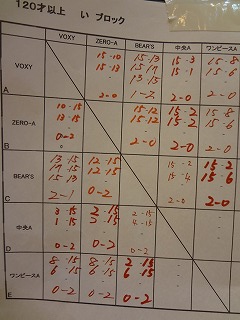 120才以上 い ブロック
VOXY ZERO-A BEAR'S 中央A ワンピースA
VOXY
A
15-10
15-13
2-0
15-13
15-17
13-15
1-2
15-3
15-1
2-0
15-8
15-6
2-0
ZERO-A
B
10-15
13-15
0-2
15-12
15-12
2-0
15-2
15-2
2-0
15-8
15-6
2-0
BEAR'S
C
13-15
17-15
15-13
2-1
12-15
12-15
0-2
15-2
15-4
2-0
15-2
15-6
2-0
中央A
D
3-15
1-15
0-2
2-15
2-15
0-2
2-15
4-15
0-2
ワンピースA
E
8-15
6-15
0-2
8-15
6-15
0-2
2-15
6-15
0-2